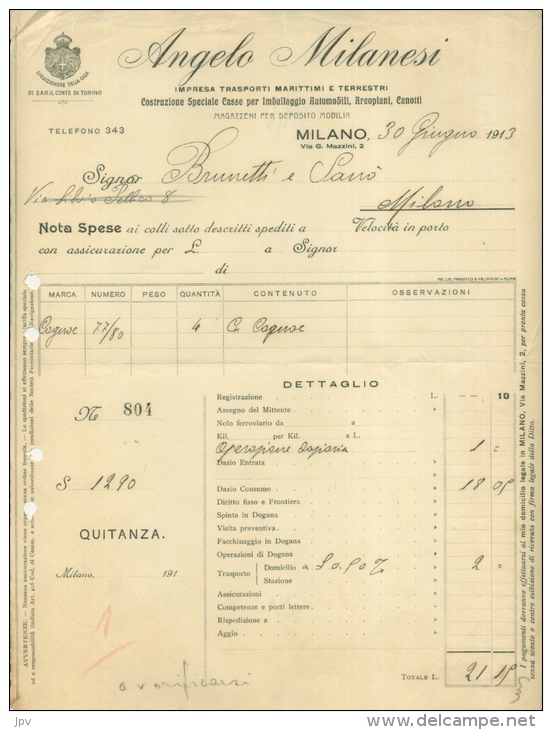 Angelo Milanesi
SPEDIZIONIERE DELLA CASA
DI S.A.R. IL CONTE DI TORINO
IMPRESA TRASPORTI MARITTIMI E TERRESTRI
Costruzione Speciale Casse per Imballaggio Automobili, Areoplani, Canotti
MAGAZZENI PER DEPOSITO MOBILIA
TELEFONO 343
MILANO, 30 Giugno 1913
Via G. Mazzini, 2
Signor Brunetti e
Via Silvio Pellico 8
Milano
Nota Spese ai colli sotto descritti spediti a Velocità in porto
con assicurazione per L. a Signor
di
MARCA NUMERO PESO QUANTITÀ CONTENUTO OSSERVAZIONI
Cognac 77/80 4 Cs Cognac
DETTAGLIO
No 804
Registrazione L. -- 10
Assegno del Mittente "
Nolo ferroviario da a "
Kil. per Kil. a L. "
Operazione 1 =
Dazio Entrata "
S 1290
Dazio Consumo " 18 05
Diritto fisso e Frontiera "
Spinta in Dogana "
Visita preventiva "
QUITANZA.
Facchinaggio in Dogana "
Operazioni di Dogana "
Trasporto Domicilio a 30.90 % " 2 =
Stazione
Milano, 191
Assicurazioni "
Competenze e porti lettere "
Rispedizione a "
Aggio "
1
TOTALE L. 21 15
AVVERTENZE. — Nessuna assicurazione viene
I pagamenti dovranno effettuarsi al mio domicilio legale in MILANO, Via Mazzini, 2, per pronta cassa
senza sconto o contro esibizione di ricevuta con firma legale della Ditta.
jpv
www.delcampe.net